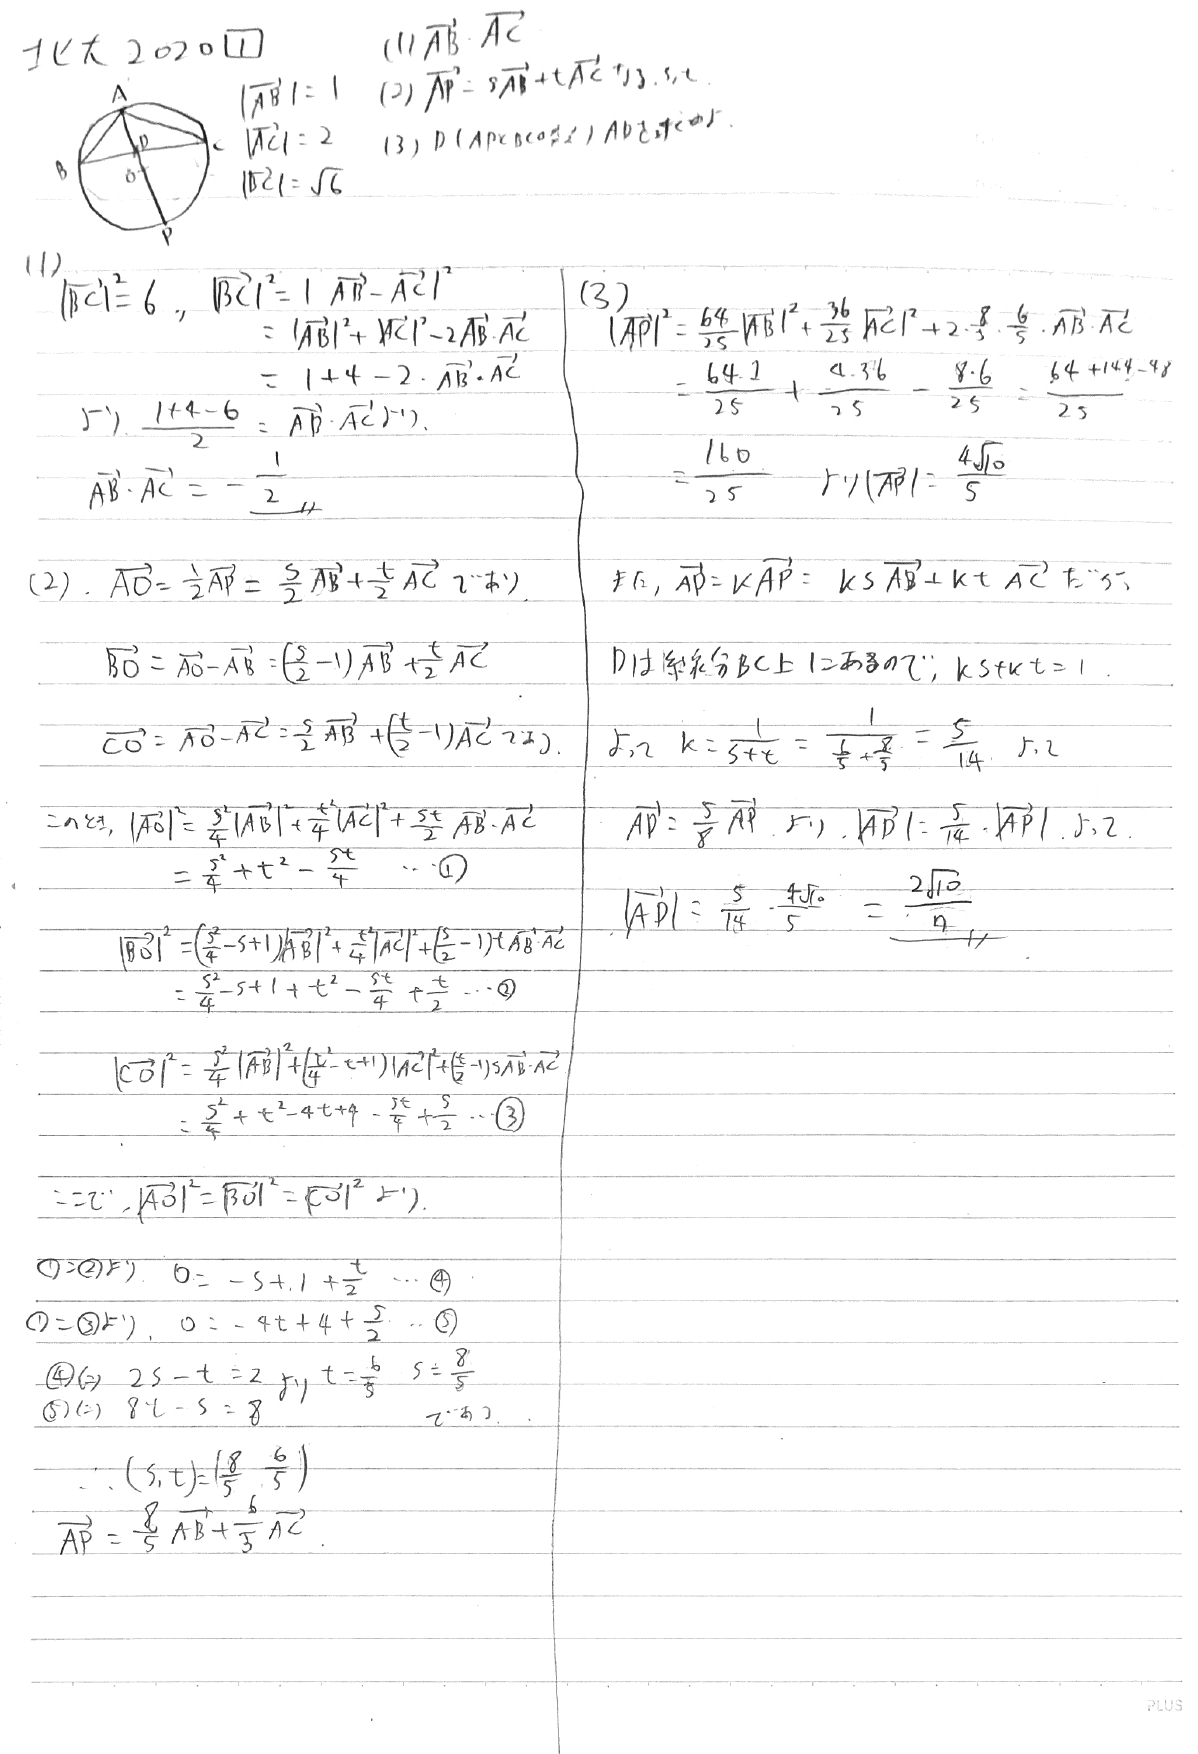 北大 2020 1
(1) AB→・AC→
|AB→| = 1
(2) AP→ = sAB→ + tAC→ なる s, t.
|AC→| = 2
(3) D (APとBCの交点) ADを求めよ.
|BC→| = √6
A
B
C
D
O
P
(1)
|BC→|² = 6 ., |BC→|² = | AB→ - AC→ |²
= |AB→|² + |AC→|² - 2AB→・AC→
= 1 + 4 - 2・AB→・AC→
より. (1+4-6)/2 = AB→・AC→ より.
AB→・AC→ = -1/2 〃
(2). AO→ = 1/2 AP→ = s/2 AB→ + t/2 AC→ であり
BO→ = AO→ - AB→ = (s/2 - 1) AB→ + t/2 AC→
CO→ = AO→ - AC→ = s/2 AB→ + (t/2 - 1) AC→ である.
このとき, |AO→|² = s²/4 |AB→|² + t²/4 |AC→|² + st/2 AB→・AC→
= s²/4 + t² - st/4 … ①
|BO→|² = (s²/4 - s + 1)|AB→|² + t²/4 |AC→|² + (s/2 - 1) t AB→・AC→
= s²/4 - s + 1 + t² - st/4 + t/2 … ②
|CO→|² = s²/4 |AB→|² + (t²/4 - t + 1)|AC→|² + (t/2 - 1) s AB→・AC→
= s²/4 + t² - 4t + 4 - st/4 + s/2 … ③
ここで, |AO→|² = |BO→|² = |CO→|² より.
①=②より. 0 = -s + 1 + t/2 … ④
①=③より, 0 = -4t + 4 + s/2 … ⑤
④⇔ 2s - t = 2 より t = 6/5 s = 8/5
⑤⇔ 8t - s = 8 である.
∴ (s, t) = (8/5 6/5)
AP→ = 8/5 AB→ + 6/5 AC→.
(3)
|AP→|² = 64/25 |AB→|² + 36/25 |AC→|² + 2・8/5・6/5・AB→・AC→
= 64・1/25 + 4・36/25 - 8・6/25 = (64+144-48)/25
= 160/25 より |AP→| = 4√10/5
また, AD→ = kAP→ = ks AB→ + kt AC→ だから
Dは線分BC上にあるので, ks+kt = 1.
よって k = 1/(s+t) = 1/(6/5 + 8/5) = 5/14 よって
AD→ = 5/8 AP→ より. |AD→| = 5/14・|AP→|. よって.
|AD→| = 5/14・4√10/5 = 2√10/7 〃
PLUS